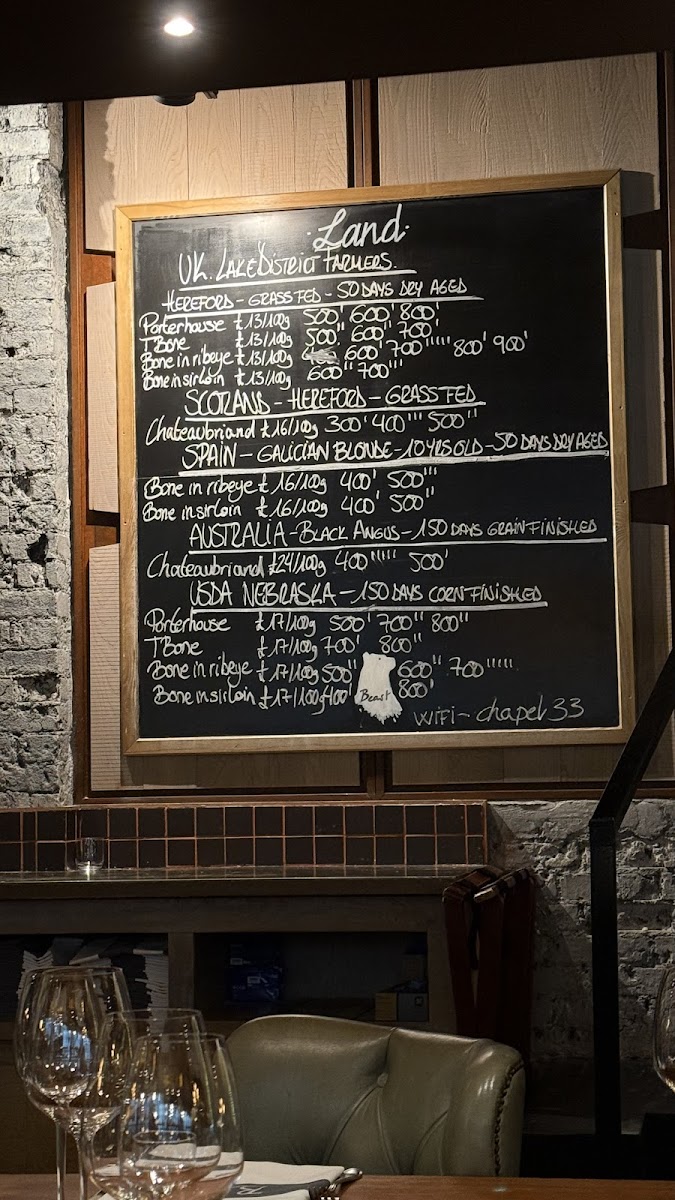 ·Land·
UK. LAKE DISTRICT FARMERS.
HEREFORD - GRASS FED - 50 DAYS DRY AGED
Porterhouse £13/100g 500' 600' 800'
T Bone £13/100g 500'' 600'' 700'
Bone in ribeye £13/100g 600' 700''''' 800' 900'
Bone in sirloin £13/100g 600'' 700'''
SCOTLAND - HEREFORD - GRASS FED
Chateaubriand £16/100g 300' 400''' 500''
SPAIN - GALICIAN BLONDE - 10 YRS OLD - 50 DAYS DRY AGED
Bone in ribeye £16/100g 400' 500'''
Bone in sirloin £16/100g 400' 500''
AUSTRALIA - BLACK ANGUS - 150 DAYS GRAIN FINISHED
Chateaubriand £24/100g 400''''' 500'
USDA NEBRASKA - 150 DAYS CORN FINISHED
Porterhouse £17/100g 500' 700'' 800''
T Bone £17/100g 700' 800''
Bone in ribeye £17/100g 500'' 600'' 700'''''
Bone in sirloin £17/100g 400' Beast 800'
WiFi - chapel 33